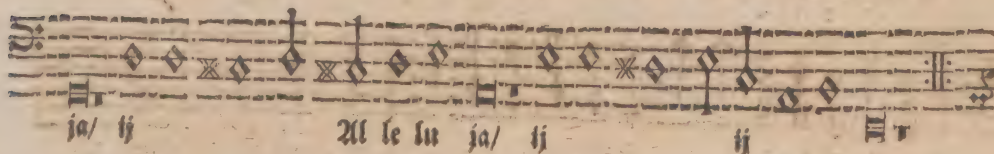 ja/ ij Al le lu ja/ ij ij